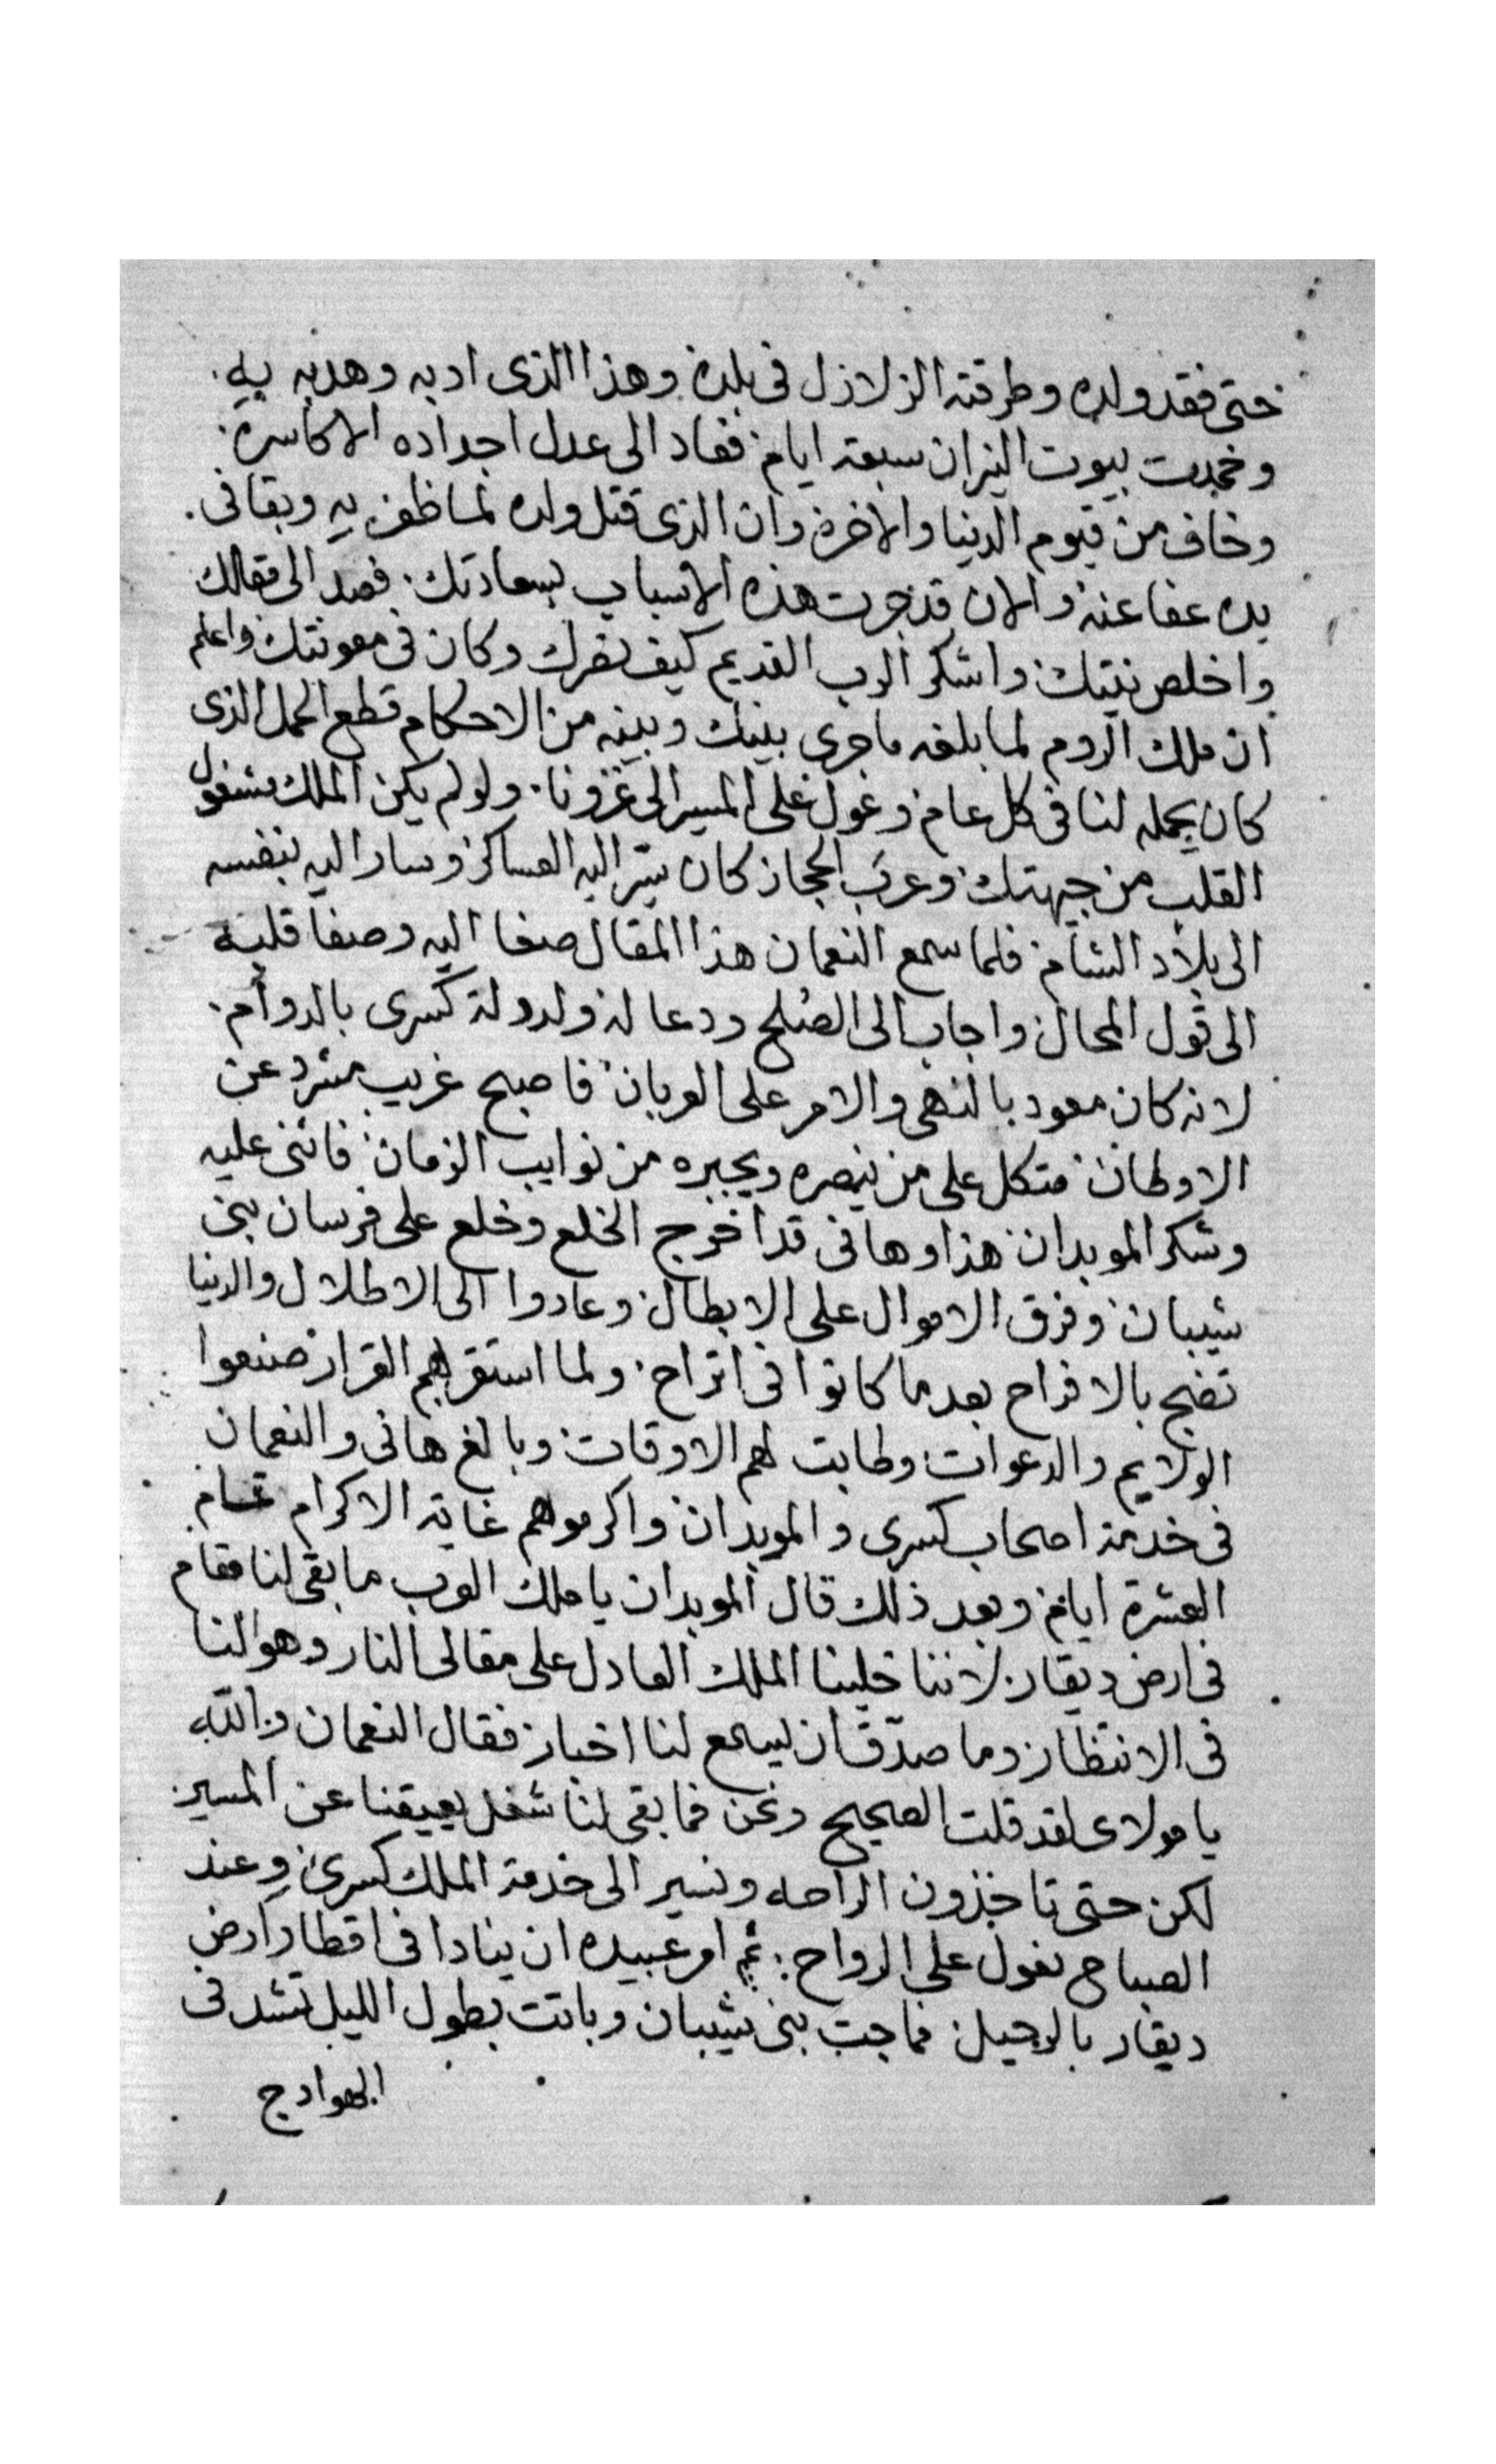 حتى فقد ولده وطرقته الزلازل فى بلده وهذا الذى ادبه وهدبه بهِ.
وخمدت بيوت النيران سبعة ايام فعاد الى عدل اجداده الاكاسرة.
وخاف من قيوم الدنيا والاخرة وان الذى قتل ولده لما ظفر بهِ وبقا فى.
يده عفا عنه والان قد جرت هذه الاسباب بسعادتك. فعد الى مقالك
واخلص نيتك واشكر الرب القديم كيف نصرك وكان فى معونتك واعلم
ان ملك الروم لما بلغه ما جرى بينك وبينه من الاحكام قطع الحمل الذى
كان يحمله لنا فى كل عام وعول على المسير الى غزونا. ولو لم يكن الملك مشغول
القلب من جهتك وعرب الحجاز كان سيّر اليه العساكر وسار اليه بنفسه
الى بلاد الشام فلما سمع النعمان هذا المقال صغا اليه وصفا قلبه
الى قول المحال واجاب الى الصُلح ودعا له ولدولة كسرى بالدوام.
لانه كان معود بالنهى والامر على العربان فاصبح غريب مشرد عن
الاوطان متكل على من ينصره ويجيره من نوايب الزمان فاثنى عليه
وشكر الموبدان هذا وهانى قد اخرج الخلع وخلع على فرسان بنى
شيبان وفرق الاموال على الابطال وعادوا الى الاطلال والدنيا
تضج بالافراح بعد ما كانوا فى اتراح. ولما استقر بهم القرار صنعوا
الولايم والدعوات وطابت لهم الاوقات وبالغ هانى والنعمان
فى خدمة اصحاب كسرى والموبدان واكرموهم غاية الاكرام تمام
العشرة ايام وبعد ذلك قال الموبدان يا ملك العرب ما بقى لنا مقام
فى ارض ديقار لاننا خلينا الملك العادل على مقالى النار وهو لنا
فى الانتظار وما صدّق ان يسمع لنا اخبار فقال النعمان والله
يا مولاى لقد قلت الصحيح ونحن فما بقى لنا شغل يعيقنا عن المسير
لكن حتى تاخذون الراحه ونسير الى خدمة الملك كسرى وعند
الصباح نعول على الرواح: ثم امر عبيده ان ينادا فى اقطار ارض
ديقار بالرحيل فماجت بنى شيبان وباتت بطول الليل تشد فى
الهوادج